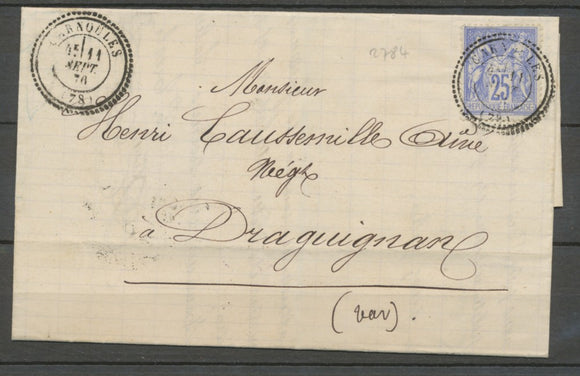 CARNOULES
11
SEPT.
76
(78)
2784
CARNOULES
25
Monsieur
Henri Caussemille Aîné
Négt
à Draguignan
(var).